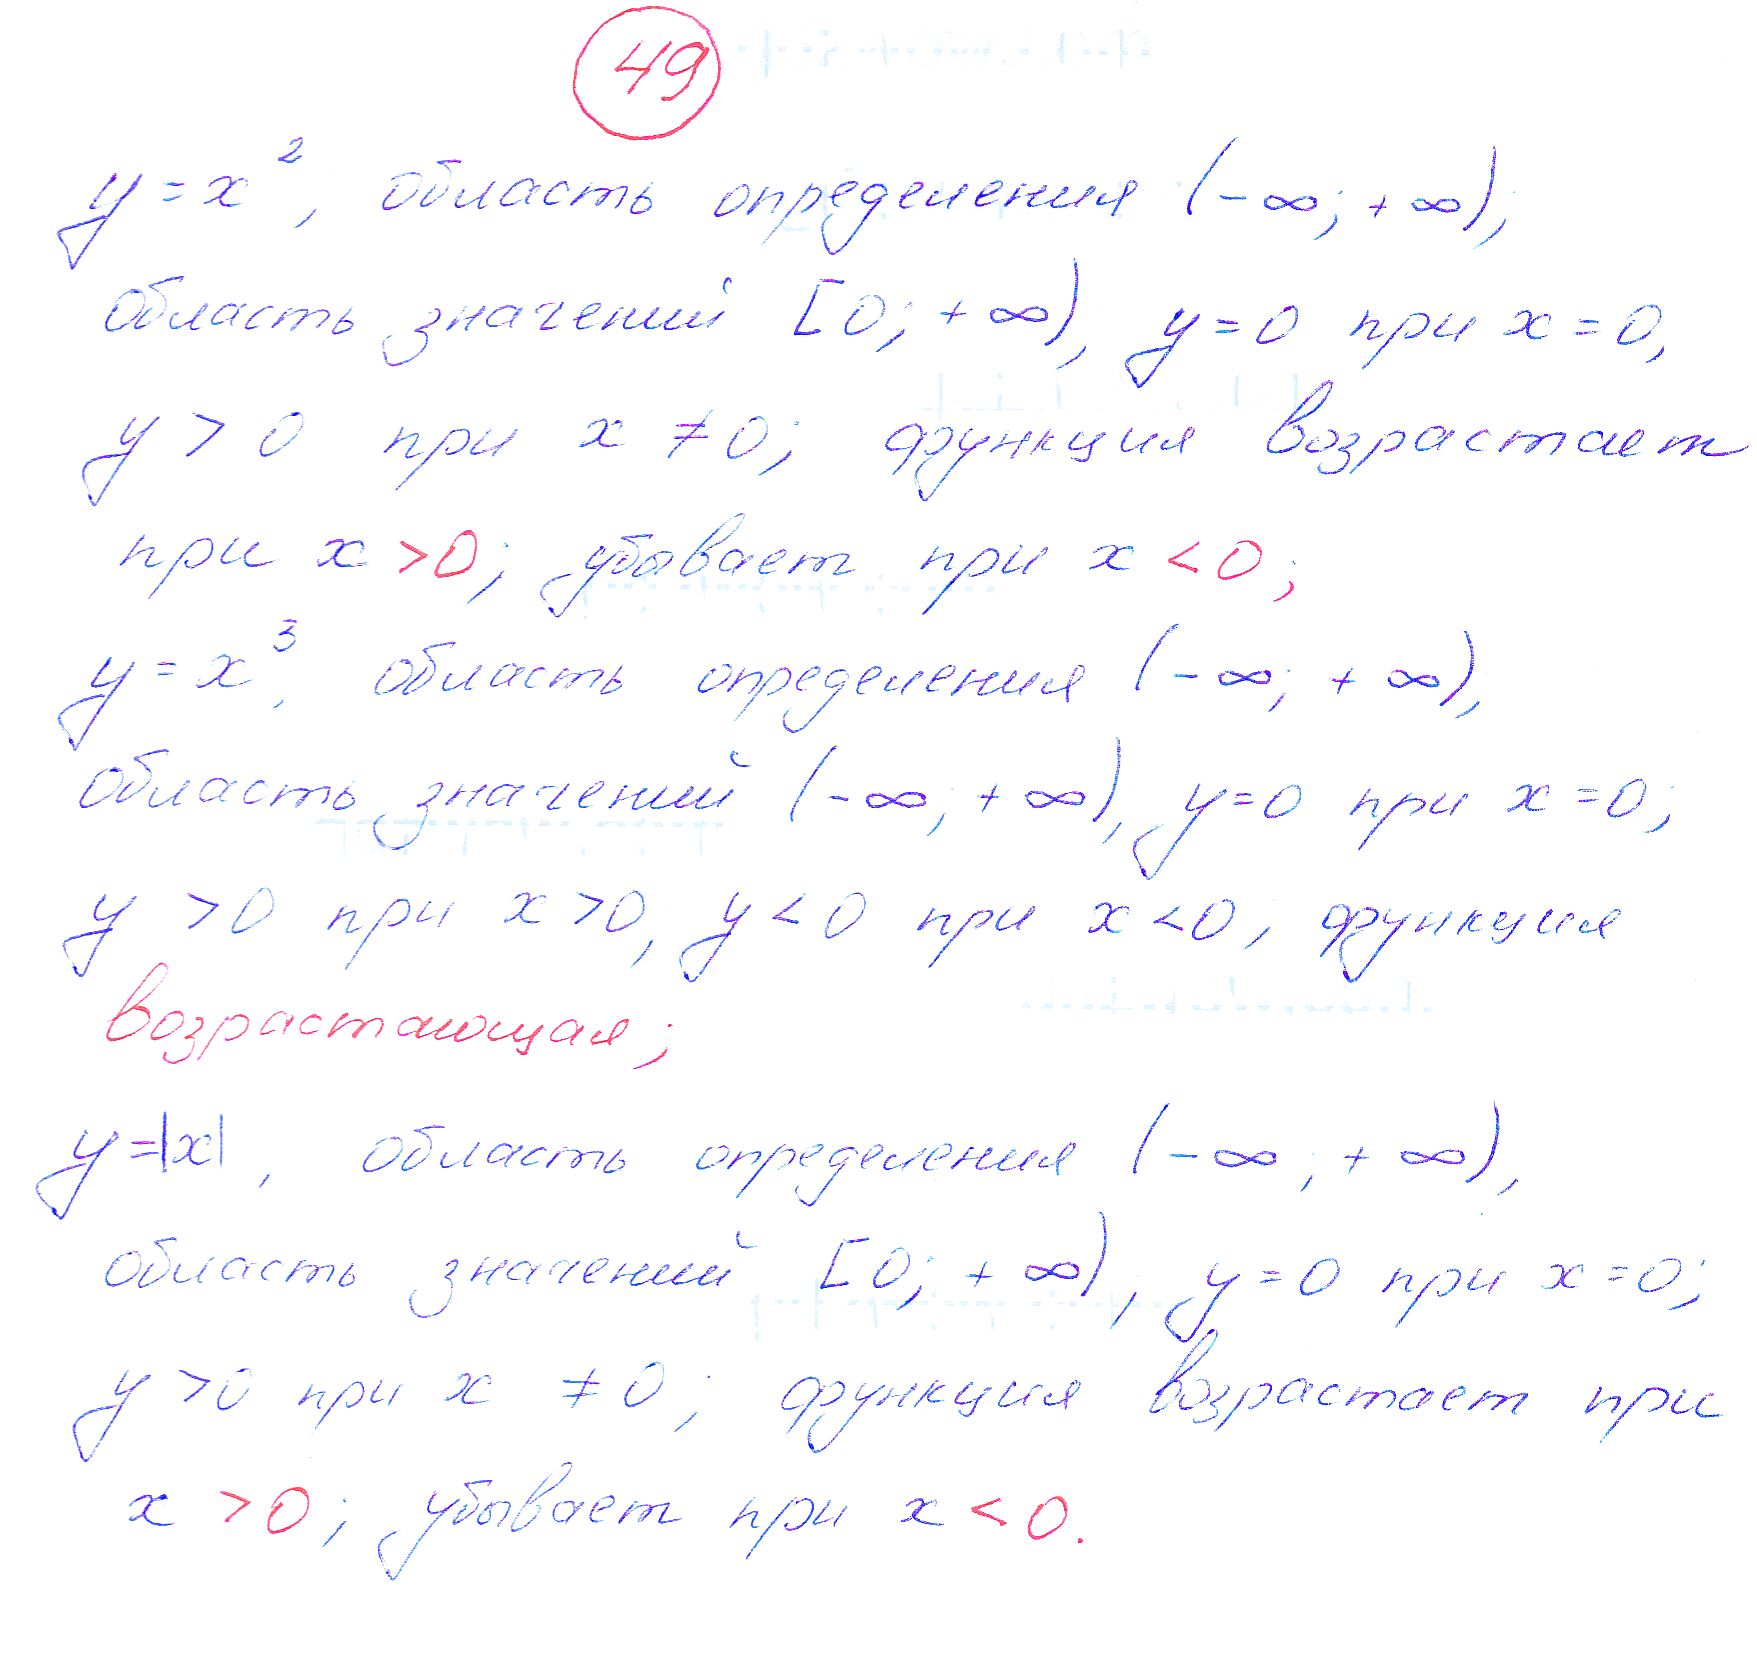 49
y = x², область определения (-∞; +∞);
область значений [0; +∞), y = 0 при x = 0,
y > 0 при x ≠ 0; функция возрастает
при x > 0; убывает при x < 0;
y = x³, область определения (-∞; +∞),
область значений (-∞; +∞), y = 0 при x = 0;
y > 0 при x > 0, y < 0 при x < 0, функция
возрастающая;
y = |x|, область определения (-∞; +∞),
область значений [0; +∞), y = 0 при x = 0;
y > 0 при x ≠ 0; функция возрастает при
x > 0; убывает при x < 0.